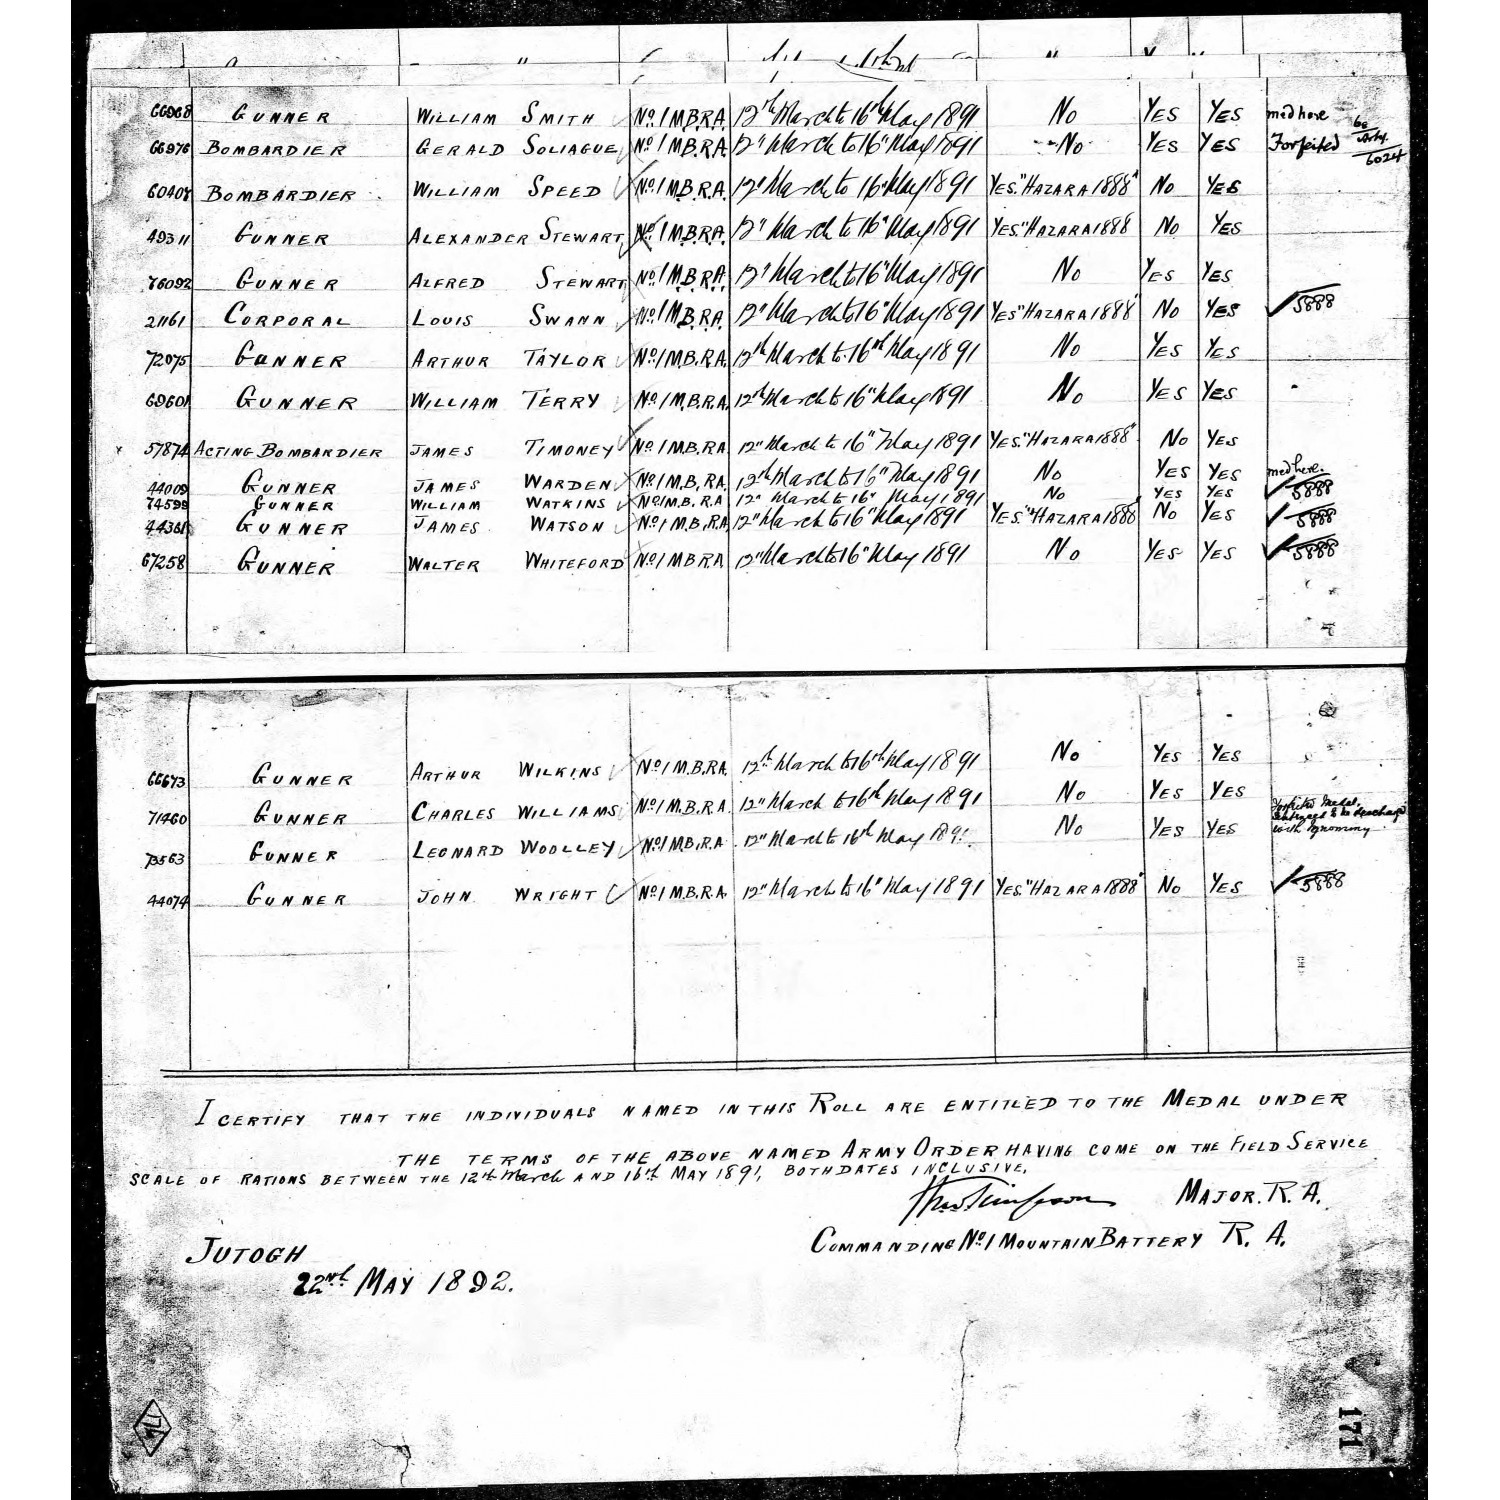 66968 GUNNER WILLIAM SMITH No 1 M.B.R.A. 12th March to 16th May 1891 No YES YES med here
66976 BOMBARDIER GERALD SOLIAGUE No 1 M.B.R.A. 12" March to 16" May 1891 No YES YES Forfeited 6024
60408 BOMBARDIER WILLIAM SPEED No 1 M.B.R.A. 12" March to 16" May 1891 YES. "HAZARA 1888" No YES
49311 GUNNER ALEXANDER STEWART No 1 M.B.R.A. 12" March to 16" May 1891 YES. "HAZARA 1888 No YES
76092 GUNNER ALFRED STEWART No 1 M.B.R.A. 12" March to 16" May 1891 No YES YES
21161 CORPORAL LOUIS SWANN No 1 M.B.R.A. 12" March to 16" May 1891 YES "HAZARA 1888" No YES 5888
72075 GUNNER ARTHUR TAYLOR No 1 M.B.R.A. 12th March to 16th May 1891 No YES YES
69601 GUNNER WILLIAM TERRY No 1 M.B.R.A. 12th March to 16" May 1891 No YES YES
x 57874 ACTING BOMBARDIER JAMES TIMONEY No 1 M.B.R.A 12" March to 16" May 1891 YES. "HAZARA 1888" No YES
44009 GUNNER JAMES WARDEN No 1 M.B.R.A. 12th March to 16" May 1891 No YES YES med here. 5888
74599 GUNNER WILLIAM WATKINS No 1 M.B.R.A 12" March to 16" May 1891 No YES YES
44361 GUNNER JAMES WATSON No 1 M.B.R.A. 12" March to 16" May 1891 YES. "HAZARA 1888 No YES 5888
67258 GUNNER WALTER WHITEFORD No 1 M B R A. 12" March to 16" May 1891 No YES YES 5888
66673 GUNNER ARTHUR WILKINS No 1 M.B.R.A. 12th March to 16th May 1891 No YES YES
71460 GUNNER CHARLES WILLIAMS No 1 M.B.R.A. 12" March to 16th May 1891 No YES YES
GUNNER LEONARD WOOLLEY No 1 M.B.R.A 12" March to 16th May 189 No YES YES Forfeited Medal. Sentenced to be discharged with Ignominy
44074 GUNNER JOHN WRIGHT No 1 M.B.R.A. 12" March to 16" May 1891 YES. "HAZARA 1888" No YES 5888
I CERTIFY THAT THE INDIVIDUALS NAMED IN THIS ROLL ARE ENTITLED TO THE MEDAL UNDER
THE TERMS OF THE ABOVE NAMED ARMY ORDER HAVING COME ON THE FIELD SERVICE
SCALE OF RATIONS BETWEEN THE 12th March AND 16th MAY 1891, BOTH DATES INCLUSIVE.
MAJOR. R. A.
COMMANDING No 1 MOUNTAIN BATTERY R. A.
JUTOGH
22nd MAY 1892.
171